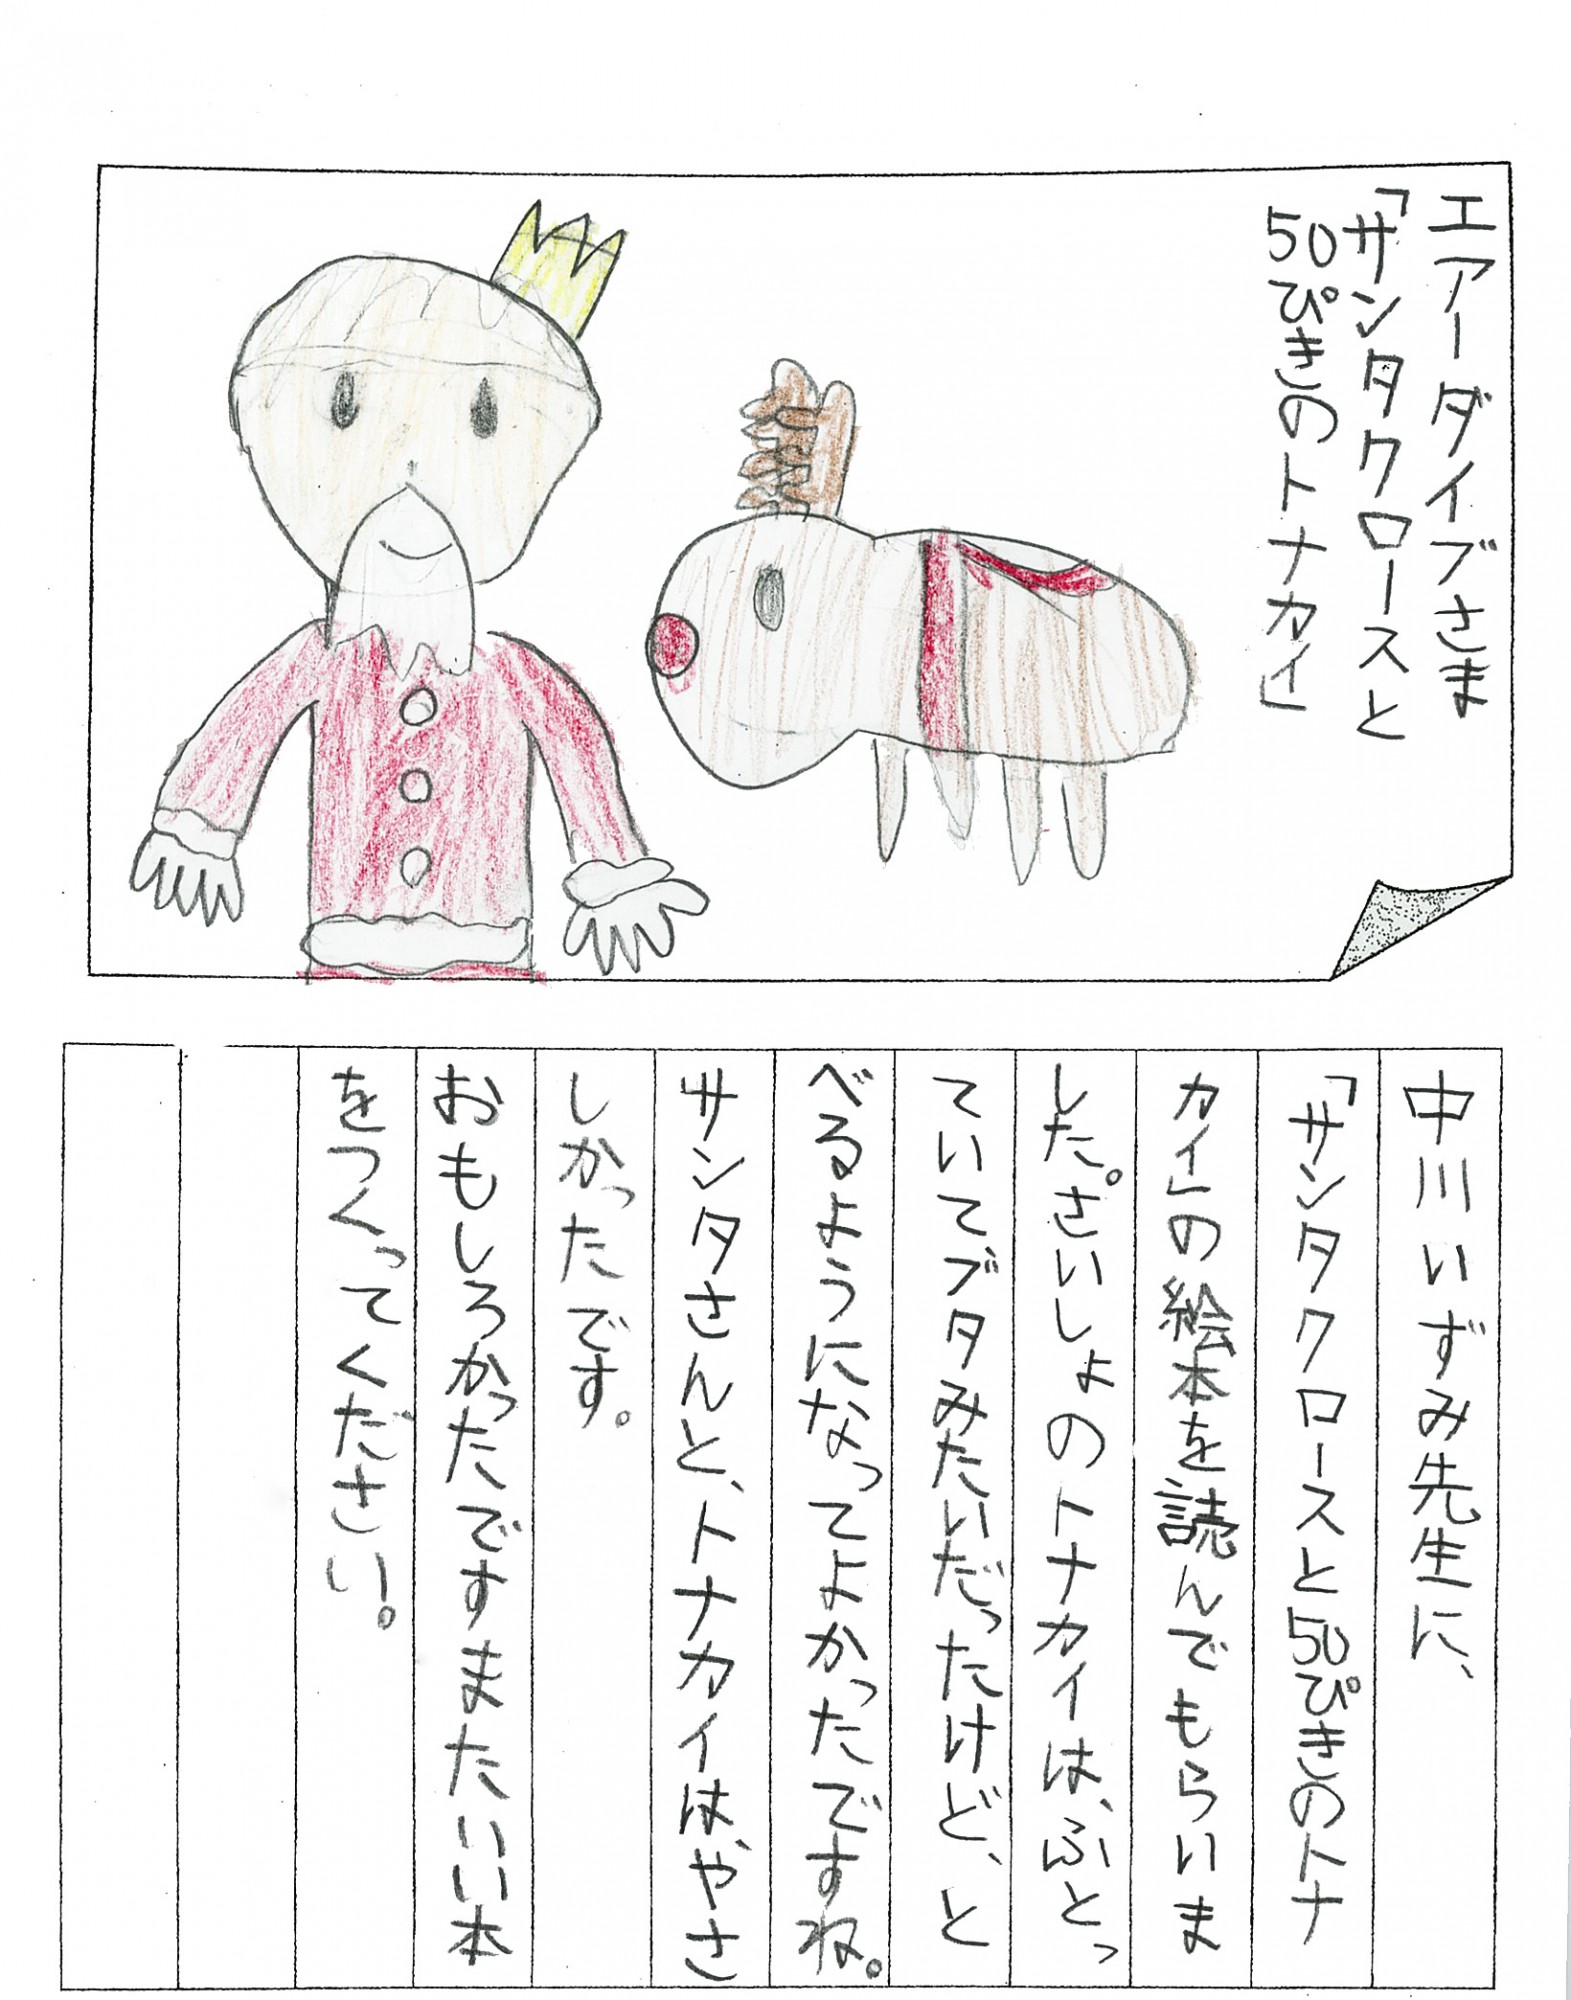 エアーダイブさま
「サンタクロースと
50ぴきのトナカイ」
中川いずみ先生に、
「サンタクロースと50ぴきのトナ
カイ」の絵本を読んでもらいま
した。さいしょのトナカイは、ふとっ
ていてブタみたいだったけど、と
べるようになってよかったですね。
サンタさんと、トナカイは、やさ
しかったです。
おもしろかったですまたいい本
をつくってください。